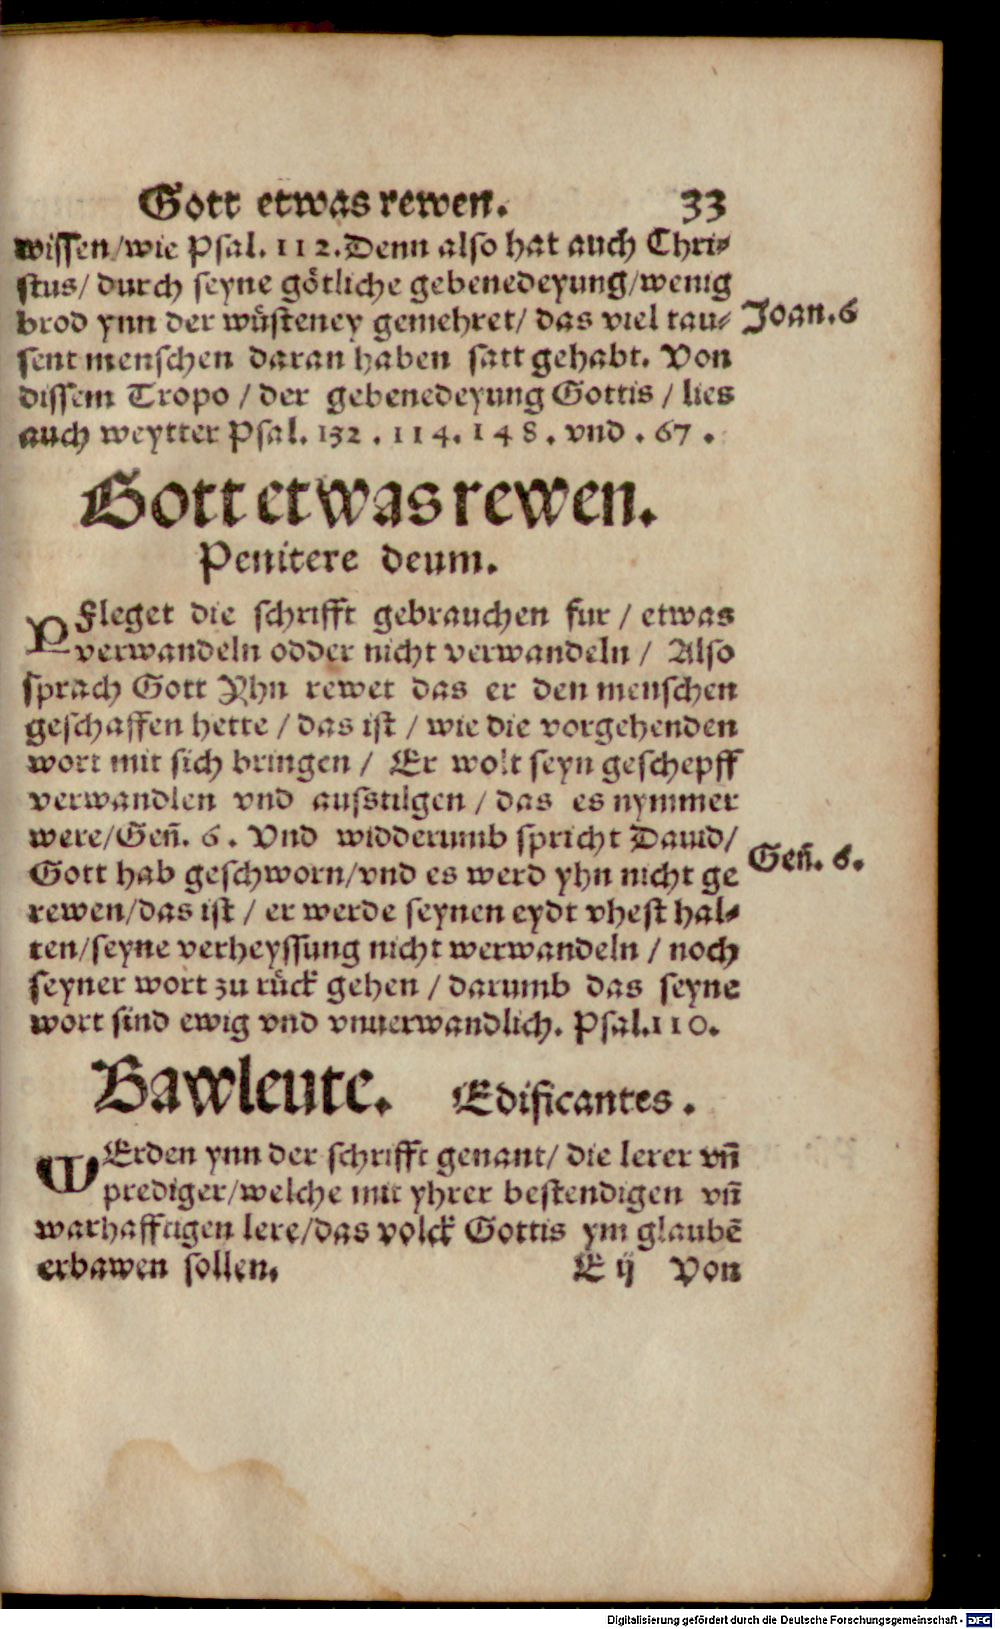 Gott etwas rewen. 33
wissen/wie Psal. 112. Denn also hat auch Chri-
stus/ durch seyne götliche gebenedeyung/wenig
brod ynn der wüsteney gemehret/ das viel tau-
Joan. 6
sent menschen daran haben satt gehabt. Von
dissem Tropo / der gebenedeyung Gottis / lies
auch weytter Psal. 132 . 114. 148 . vnd . 67 .
Gott etwas rewen.
Penitere deum.
PFleget die schrifft gebrauchen fur / etwas
verwandeln odder nicht verwandeln / Also
sprach Gott Yhn rewet das er den menschen
geschaffen hette / das ist / wie die vorgehenden
wort mit sich bringen / Er wolt seyn geschepff
verwandlen vnd ausstilgen / das es nymmer
were/Geñ. 6 . Vnd widderumb spricht Dauid/
Geñ. 6.
Gott hab geschworn/vnd es werd yhn nicht ge
rewen/das ist / er werde seynen eydt vhest hal-
ten/seyne verheyssung nicht werwandeln / noch
seyner wort zu rück gehen / darumb das seyne
wort sind ewig vnd vnuerwandlich. Psal.110.
Bawleute. Edificantes .
WErden ynn der schrifft genant/ die lerer vñ
prediger/welche mit yhrer bestendigen vñ
warhafftigen lere/das volck Gottis ym glaubē
erbawen sollen. E ij Von
Digitalisierung gefördert durch die Deutsche Forschungsgemeinschaft - DFG